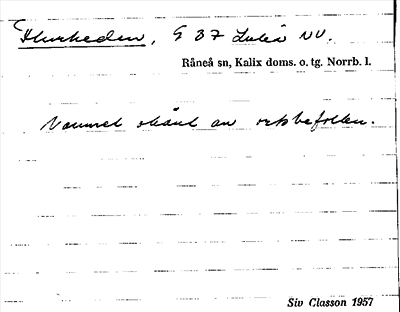 Flurheden, G 37 Luleå NV.
Råneå sn, Kalix doms. o. tg. Norrb. l.
Namnet okänt av ortsbefolkn.
Siv Classon 1957